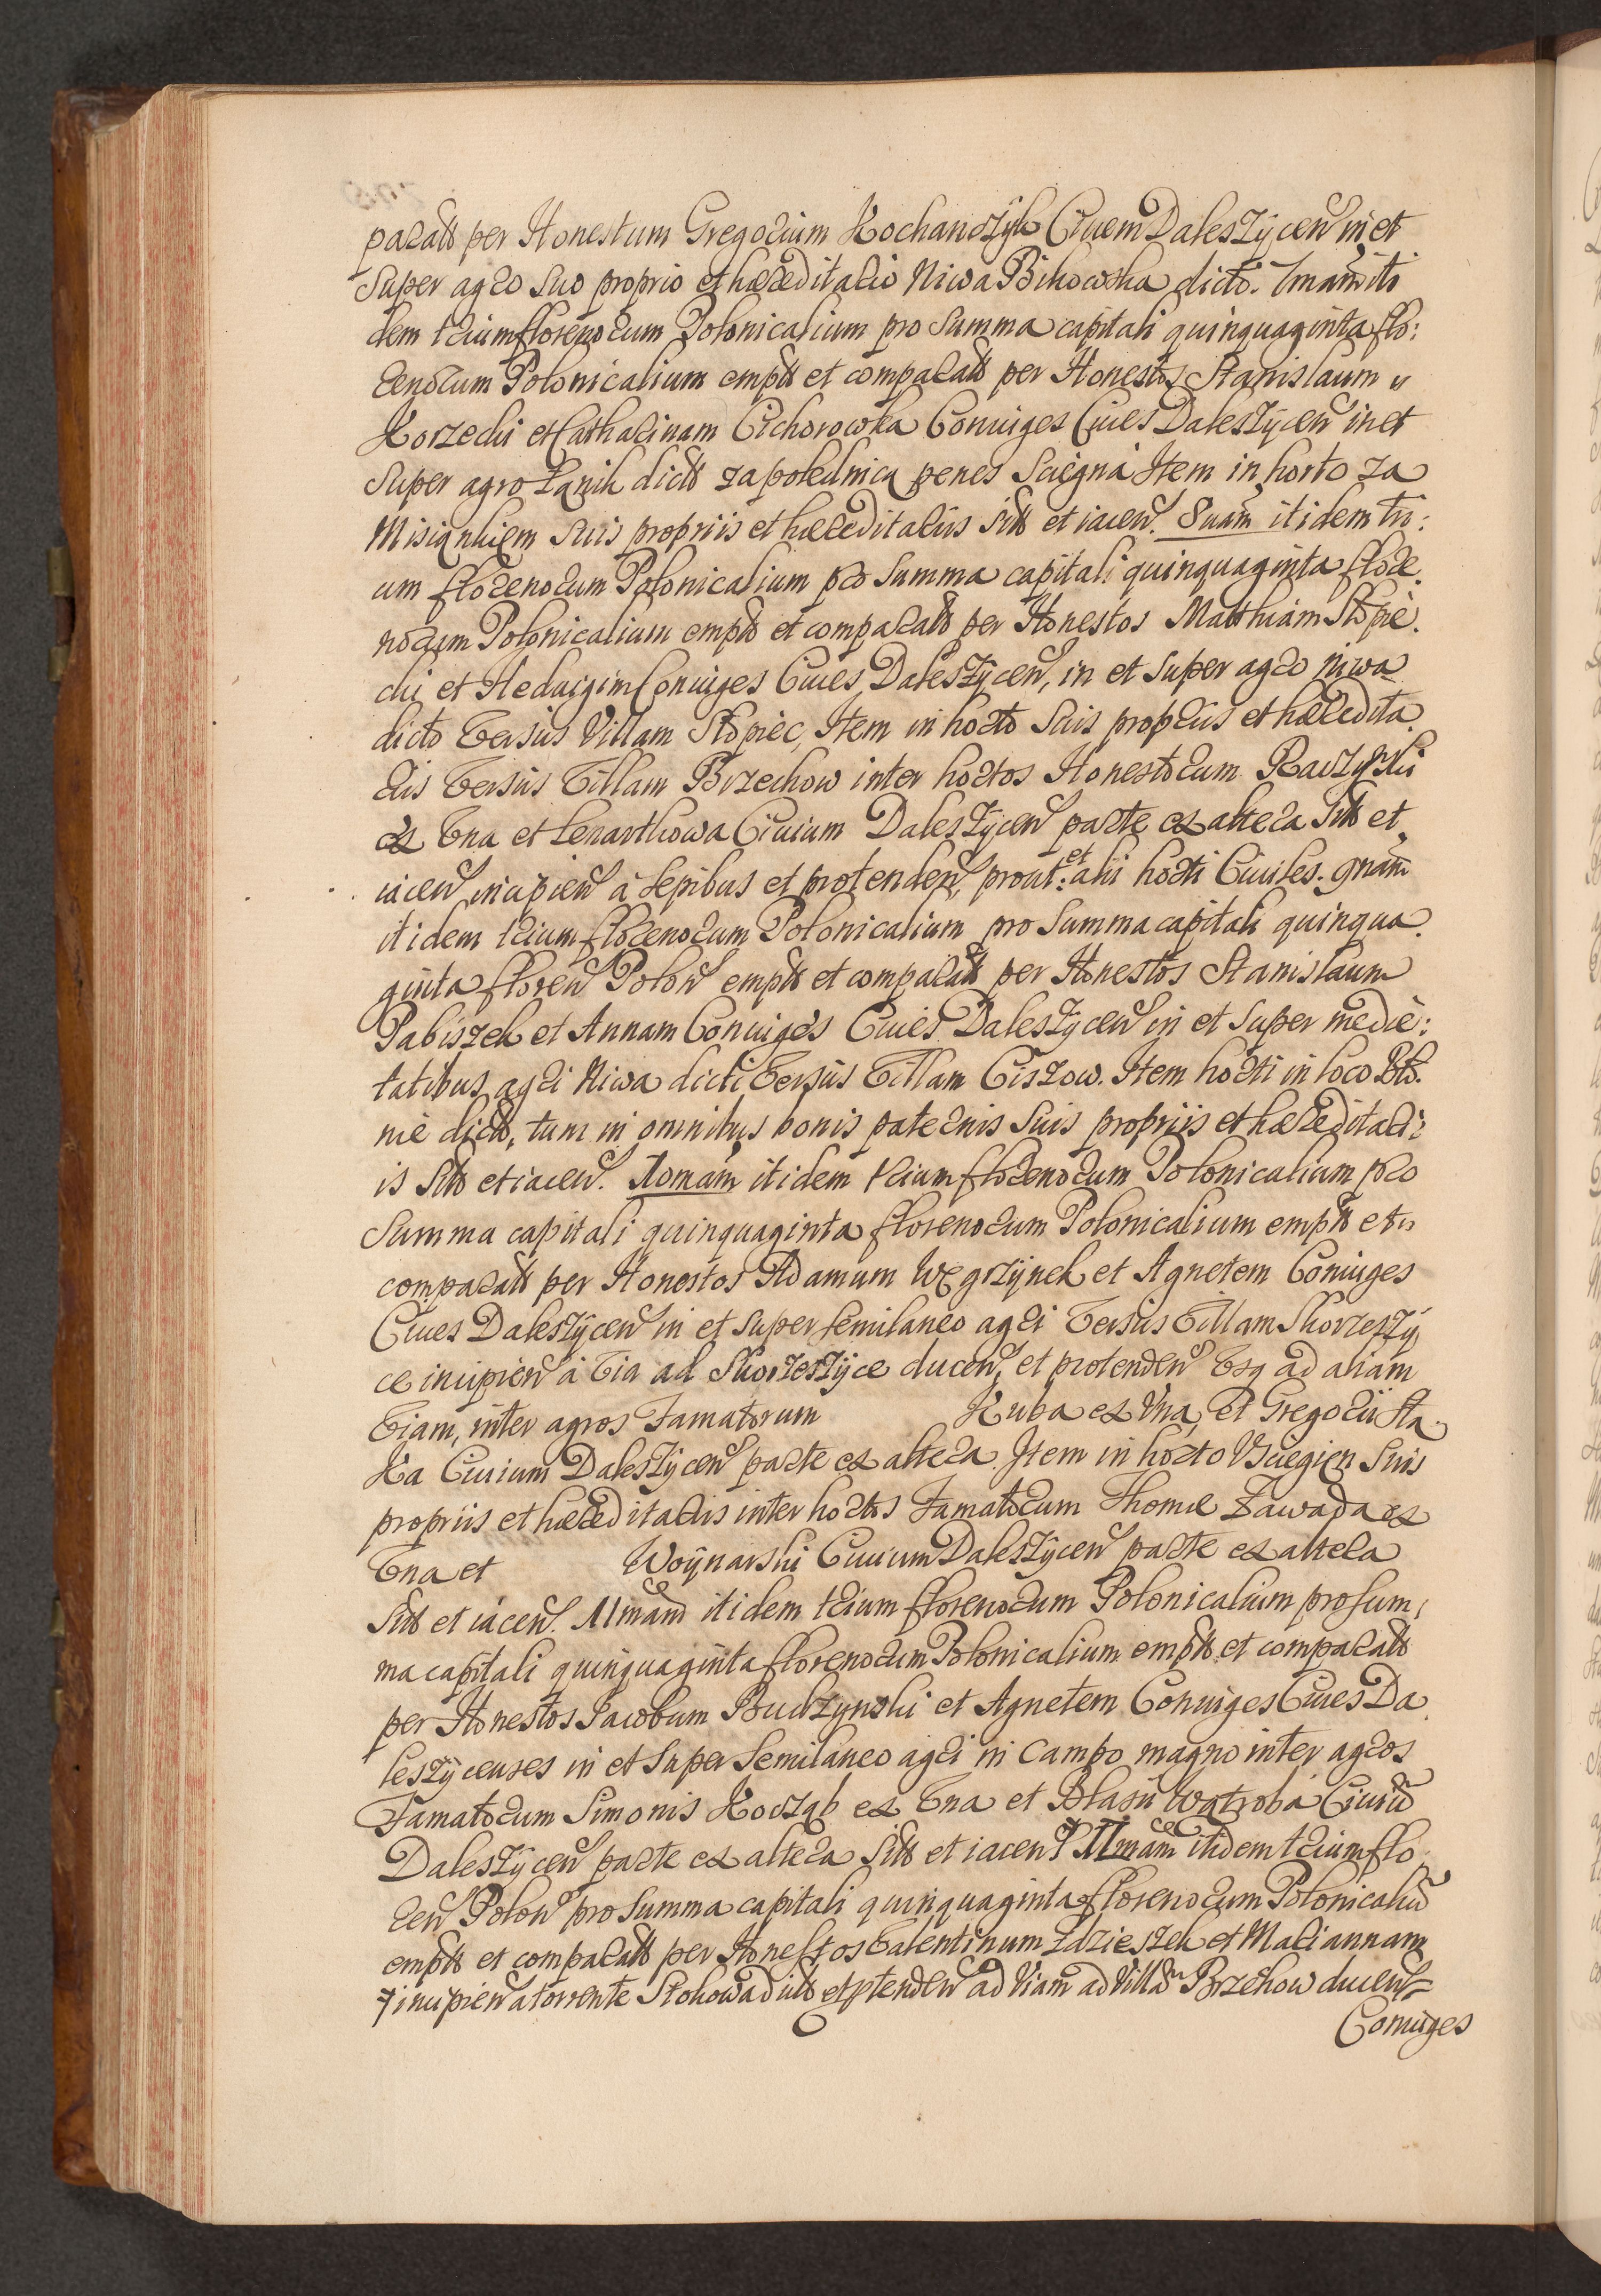 parats per Honestum Gregorium Kochanczyk Civem Daleszÿcen̄ in et
super agro suo proprio et hæreditario Niwa Bikowska dicto. 7mam iti
dem trium florenorum Polonicalium pro summa capitali quinquaginta flo:
renorum Polonicalium empts et comparats per Honestos Stanislaum
Korzecki et Catharinam Cichorowka Coniuges Cives Daleszÿcen̄ in et
super agro Łanik dicts zapolednica penes Sciegna Item in horto za
suis propriis et hæreditariis sits et iacen̄. 8uam itidem tri:
um florenorum Polonicalium pro summa capitali quinquaginta flore
norum Polonicalium empts et comparats per Honestos Matthiam Stopie
cki et Heduigim Coniuges Cives Daleszÿcen̄, in et super agro niwa
dicto versus Villam Stopiec, Item in horto suis propriis et hæredita
riis versus Villam Brzechow inter hortos Honestorum Raczynski
ex una et Lenarthowa Civium Daleszÿcen̄ parte ex altera sits et
iacen̄ incipien̄ à sepibus et protenden̄, prout et alii horti Civiles. 9nam
itidem trium florenorum Polonicalium pro summa capitali quinqua
ginta floren̄ Polon̄ empts et comparats per Honestos Stanislaum
Pabiszek et Annam Coniuges Cives Daleszÿcen̄ in et super medie:
tatibus agri Niwa dicti versus Villam Ciszow. Item horti in loco Bło
nie dicts, tum in omnibus bonis paternis suis propriis et hæreditari:
is sits et iacen̄. 10mam itidem trium florenorum Polonicalium pro
summa capitali quinquaginta florenorum Polonicalium empts et
comparats per Honestos Adamum Węgrzÿnek et Agnetem Coniuges
Cives Daleszÿcen̄ in et super semilaneo agri versus Villam Skorzeszÿ
ce incipien̄ à via ad Skorzeszÿce ducen̄, et protenden̄ usq ad aliam
viam, inter agros Famatorum Kuba ex una, et Gregorii Sta
Ka Civium Daleszÿcen̄ parte ex altera. Item in horto Vsciegien suis
propriis et hæreditariis inter hortos Famatorum Thomæ Zawada ex
una et Woÿnarski Civium Daleszÿcen̄ parte ex altera
sits et iacen̄. 11mam itidem trium florenorum Polonicalium pro sum
ma capitali quinquaginta florenorum Polonicalium empts et comparats
per Honestos Jacobum Budzynski et Agnetem Coniuges Cives Da
leszÿcenses in et super semilaneo agri in Campo magno inter agros
Famatorum Simonis Koczab ex una et Blasii Wątroba Civiū
Daleszÿcen̄ parte ex altera sits et iacen̄ 12mam itidem trium flo
ren̄ Polon̄ pro summa capitali quinquaginta florenorum Polonicaliū
empts et comparats per Honestos Valentinum Zdzieszek et Mariannam
incipien̄ a torrente Stokowad icts et ptenden̄ ad Viam ad Villā Brzehow ducen̄
Coniuges